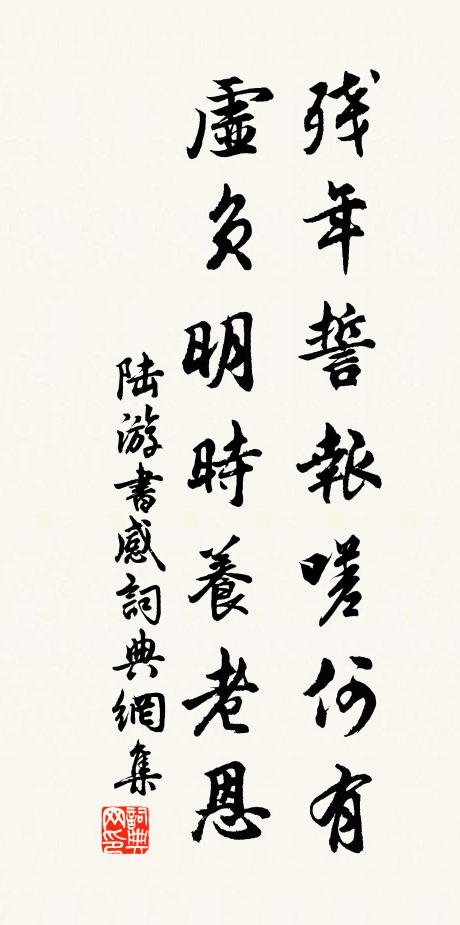 残年誓報嗟何有
虛負明時養老恩
陆游書感詞典網集
詞典网印